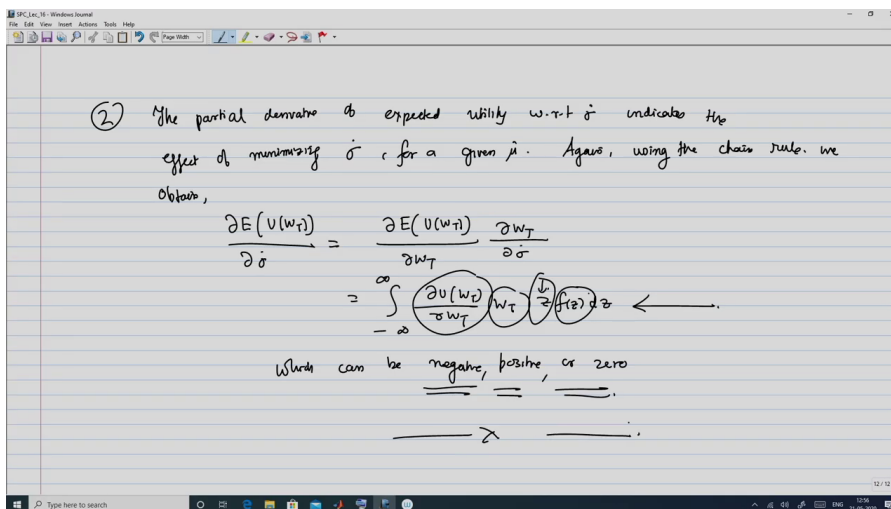 SPC_Lec_16 - Windows Journal
File Edit View Insert Actions Tools Help
Page Width
② The partial derivative of expected utility w.r.t σ̇ indicates the
effect of minimizing σ̇, for a given μ̇. Again, using the chain rule. we
obtain,
∂E(U(W_T))/∂σ̇ = ∂E(U(W_T))/∂W_T ∂W_T/∂σ̇
= ∫_{-∞}^{∞} ∂U(W_T)/∂W_T W_T z f(z) dz ←
which can be negative, positive, or zero
x
12 / 12
Type here to search
ENG
12:56
21-05-2020